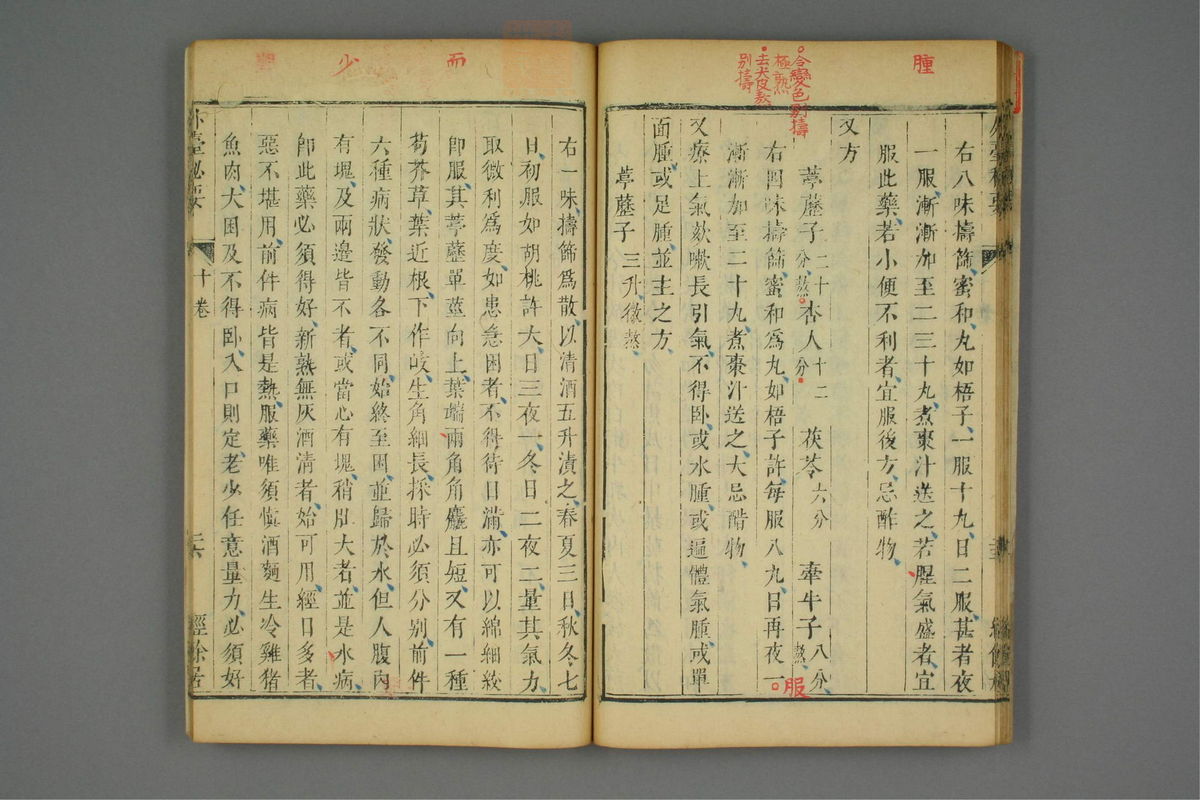 腫
右八味擣篩蜜和丸如梧子一服十丸日二服甚者夜
一服漸漸加至二三十丸煮棗汁送之若腥氣盛者宜
服此藥若小便不利者宜服後方忌酢物
又方
令變色別擣
極熟
去尖皮熬
別擣
葶藶子二十分熬杏人十二分 茯苓六分 牽牛子八分熬
右四味擣篩蜜和為丸如梧子許每服八丸日再夜一
服
漸漸加至二十丸煮棗汁送之大忌醋物
又療上氣欬嗽長引氣不得卧或水腫或遍體氣腫或單
面腫或足腫並主之方
葶藶子三升微熬
右一味擣篩為散以清酒五升漬之春夏三日秋冬七
日初服如胡桃許大日三夜一冬日二夜二量其氣力
取微利為度如患急困者不得待日滿亦可以綿細絞
即服其葶藶單莖向上葉端兩角角麤且短又有一種
茍芥草葉近根下作歧生角細長採時必須分別前件
六種病狀發動各不同始終至困並歸於水但人腹內
有塊及兩邊皆不者或當心有塊稍肶大者並是水病
即此藥必須得好新熟無灰酒清者始可用經日多者
惡不堪用前件病皆是熱服藥唯須慎酒麵生冷雞猪
魚肉大困及不得卧入口則定老少任意量力必須好
而
少
外臺秘要
十卷
二六
經餘居